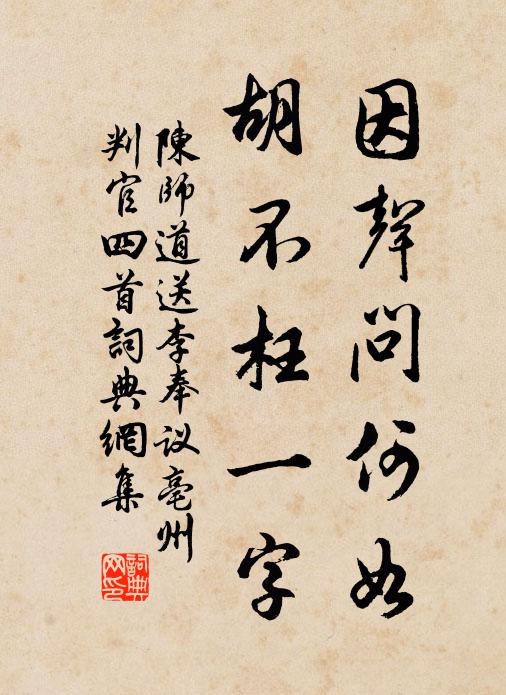 因聲問何如
胡不枉一字
陳師道送李奉议亳州
判官四首詞典網集
詞典网印